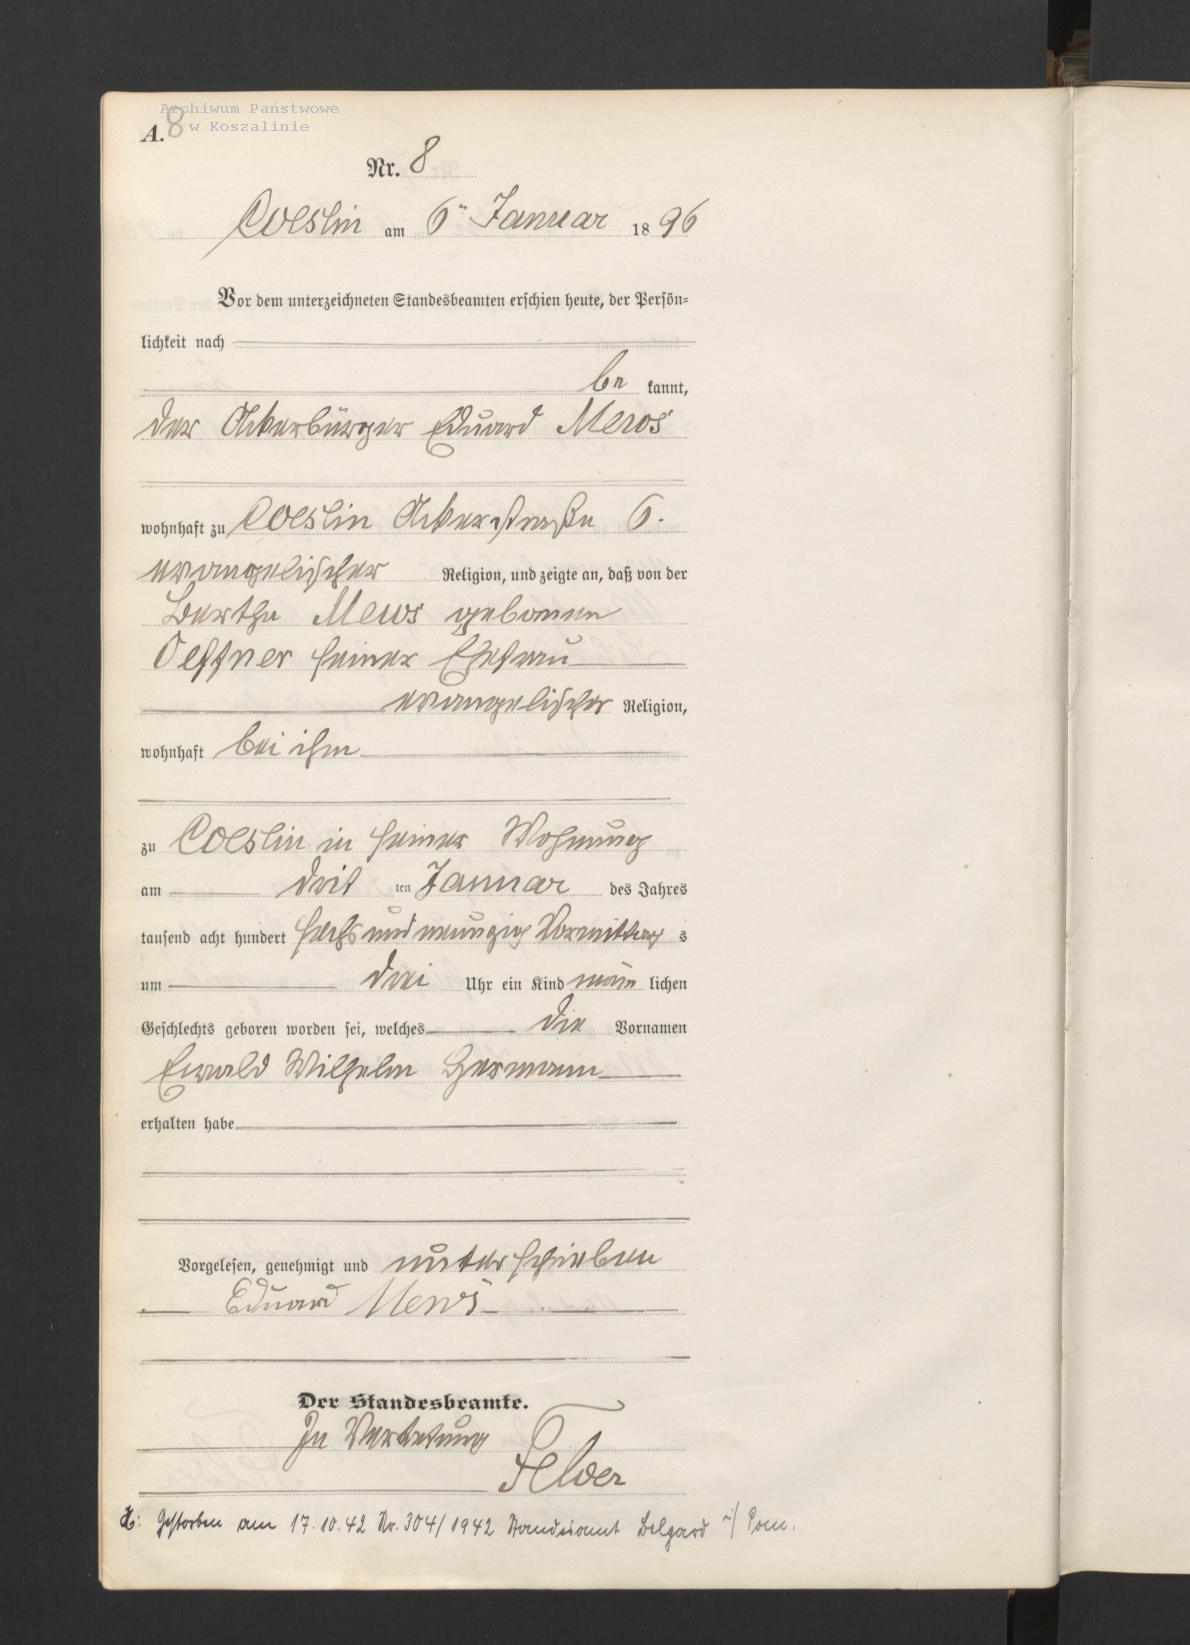 Archiwum Państwowe
w Koszalinie
A. 8
Nr. 8
Coeslin am 6ten Januar 1896
Vor dem unterzeichneten Standesbeamten erschien heute, der Persön=
lichkeit nach
be kannt,
der Ackerbürger Eduard Mews
wohnhaft zu Coeslin Ackerstraße 6.
evangelischer Religion, und zeigte an, daß von der
Bertha Mews geborenen
seiner Ehefrau
evangelischer Religion,
wohnhaft bei ihm
zu Coeslin in seiner Wohnung
am dritten Januar des Jahres
tausend acht hundert sechs und neunzig Vormittag s
um drei Uhr ein Kind männ lichen
Geschlechts geboren worden sei, welches die Vornamen
Ewald Wilhelm Hermann
erhalten habe
Vorgelesen, genehmigt und unterschrieben
Eduard Mews
Der Standesbeamte.
In Vertretung
H: Gestorben am 17.10.42 Nr. 304/1942 Standesamt Belgard i/ Pom.